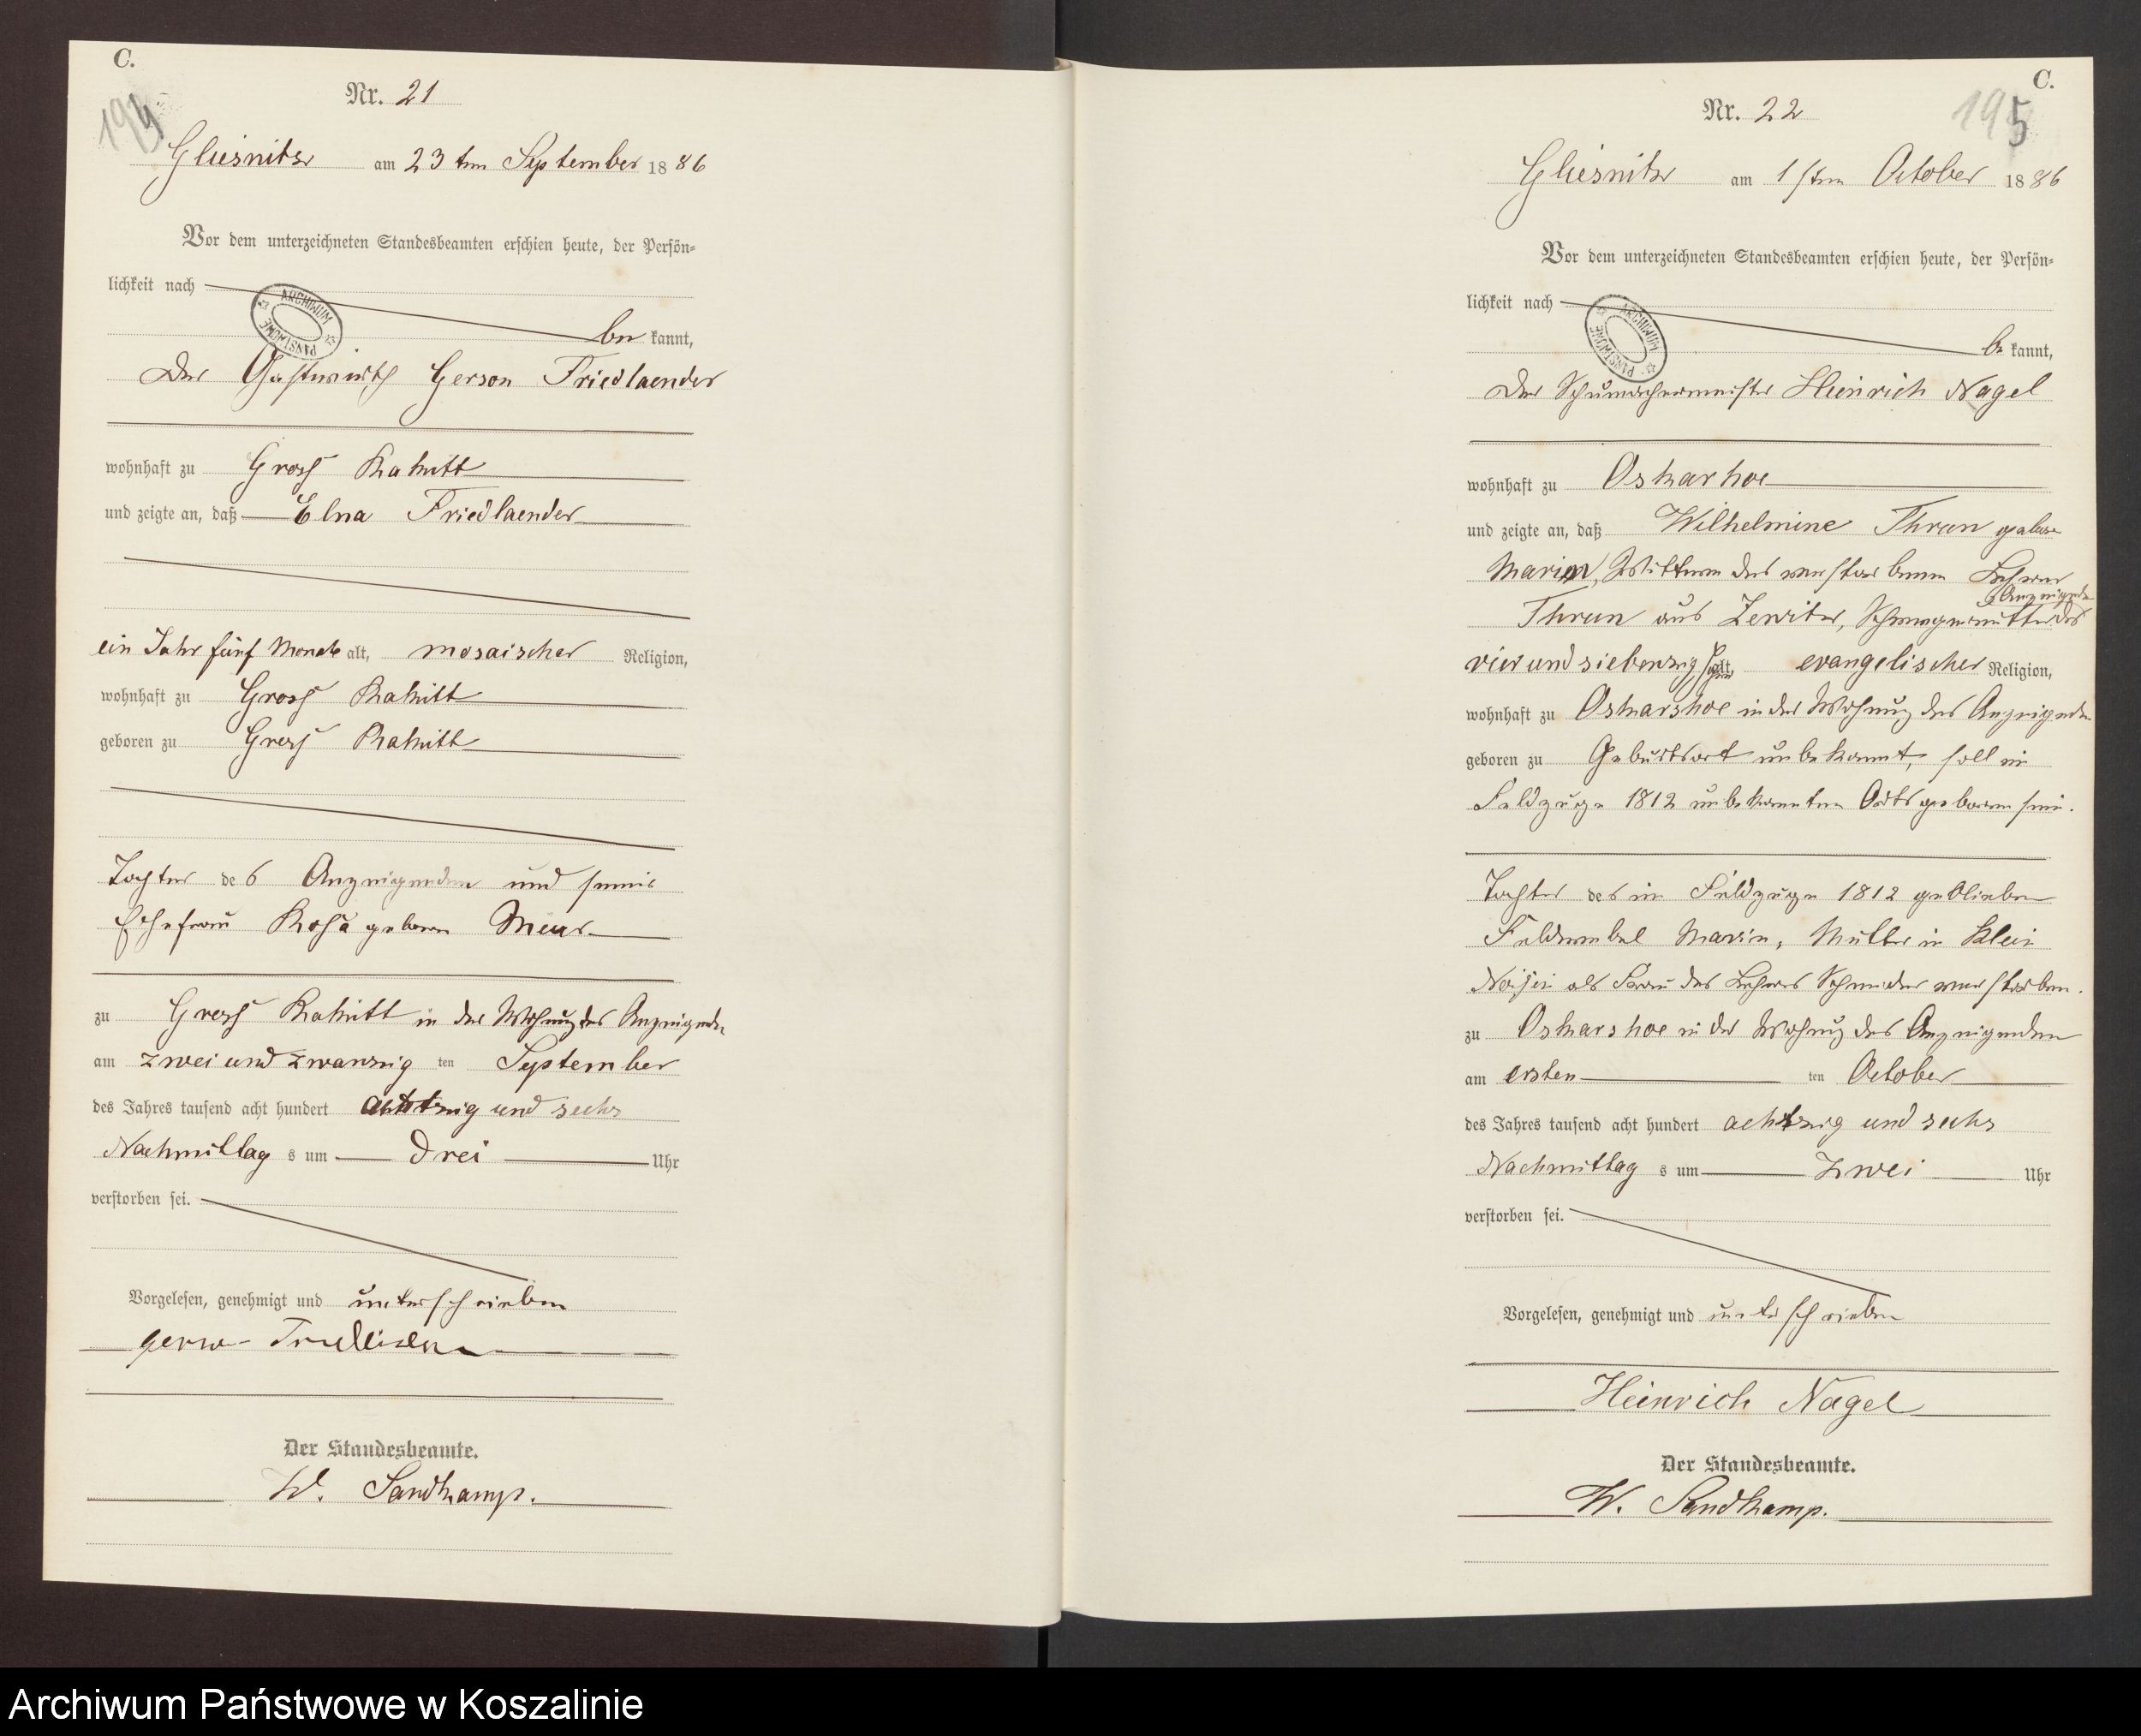 C.
194
Nr. 21
Gliesnitz am 23ten September 1886
Vor dem unterzeichneten Standesbeamten erschien heute, der Persön-
lichkeit nach
be kannt,
ARCHIWUM PAŃSTWOWE
der Gastwirth Gerson Friedlaender
wohnhaft zu Gross Rakitt
und zeigte an, daß Elna Friedlaender
ein Jahr fünf Monate alt, mosaischer Religion,
wohnhaft zu Gross Rakitt
geboren zu Gross Rakitt
Tochter des Anzeigenden und seiner
Ehefrau Rosa geboren
zu Gross Rakitt in der Wohnung des Anzeigenden
am zwei und zwanzig ten September
des Jahres tausend acht hundert achtzig und sechs
Nachmittag s um drei Uhr
verstorben sei.
Vorgelesen, genehmigt und unterschrieben
Der Standesbeamte.
W. Sandkamp.
C.
195
Nr. 22
Gliesnitz am 1sten October 1886
Vor dem unterzeichneten Standesbeamten erschien heute, der Persön-
lichkeit nach
be kannt,
ARCHIWUM PAŃSTWOWE
der Schumachermeister Heinrich Nagel
wohnhaft zu Oskarhoe
und zeigte an, daß Wilhelmine Thrun geborne
Marin, Wittwe des verstorbenen Lehrer
Anzeigenden
Thrun aus Zewitz, Schwiegermutter des
vier und siebenzig Jahr alt, evangelischer Religion,
wohnhaft zu Oskarshoe in der Wohnung des Anzeigenden
geboren zu Geburtsort unbekannt, soll im
Feldzuge 1812 unbekannten Orts geboren sein.
Tochter des im Feldzuge 1812 geblieben
Feldwebel Marin, Mutter in Klein
als Frau des Lehrers Schneider verstorben.
zu Oskarshoe in der Wohnung des Anzeigenden
am ersten ten October
des Jahres tausend acht hundert achtzig und sechs
Nachmittag s um zwei Uhr
verstorben sei.
Vorgelesen, genehmigt und unterschrieben
Heinrich Nagel
Der Standesbeamte.
W. Sandkamp.
Archiwum Państwowe w Koszalinie